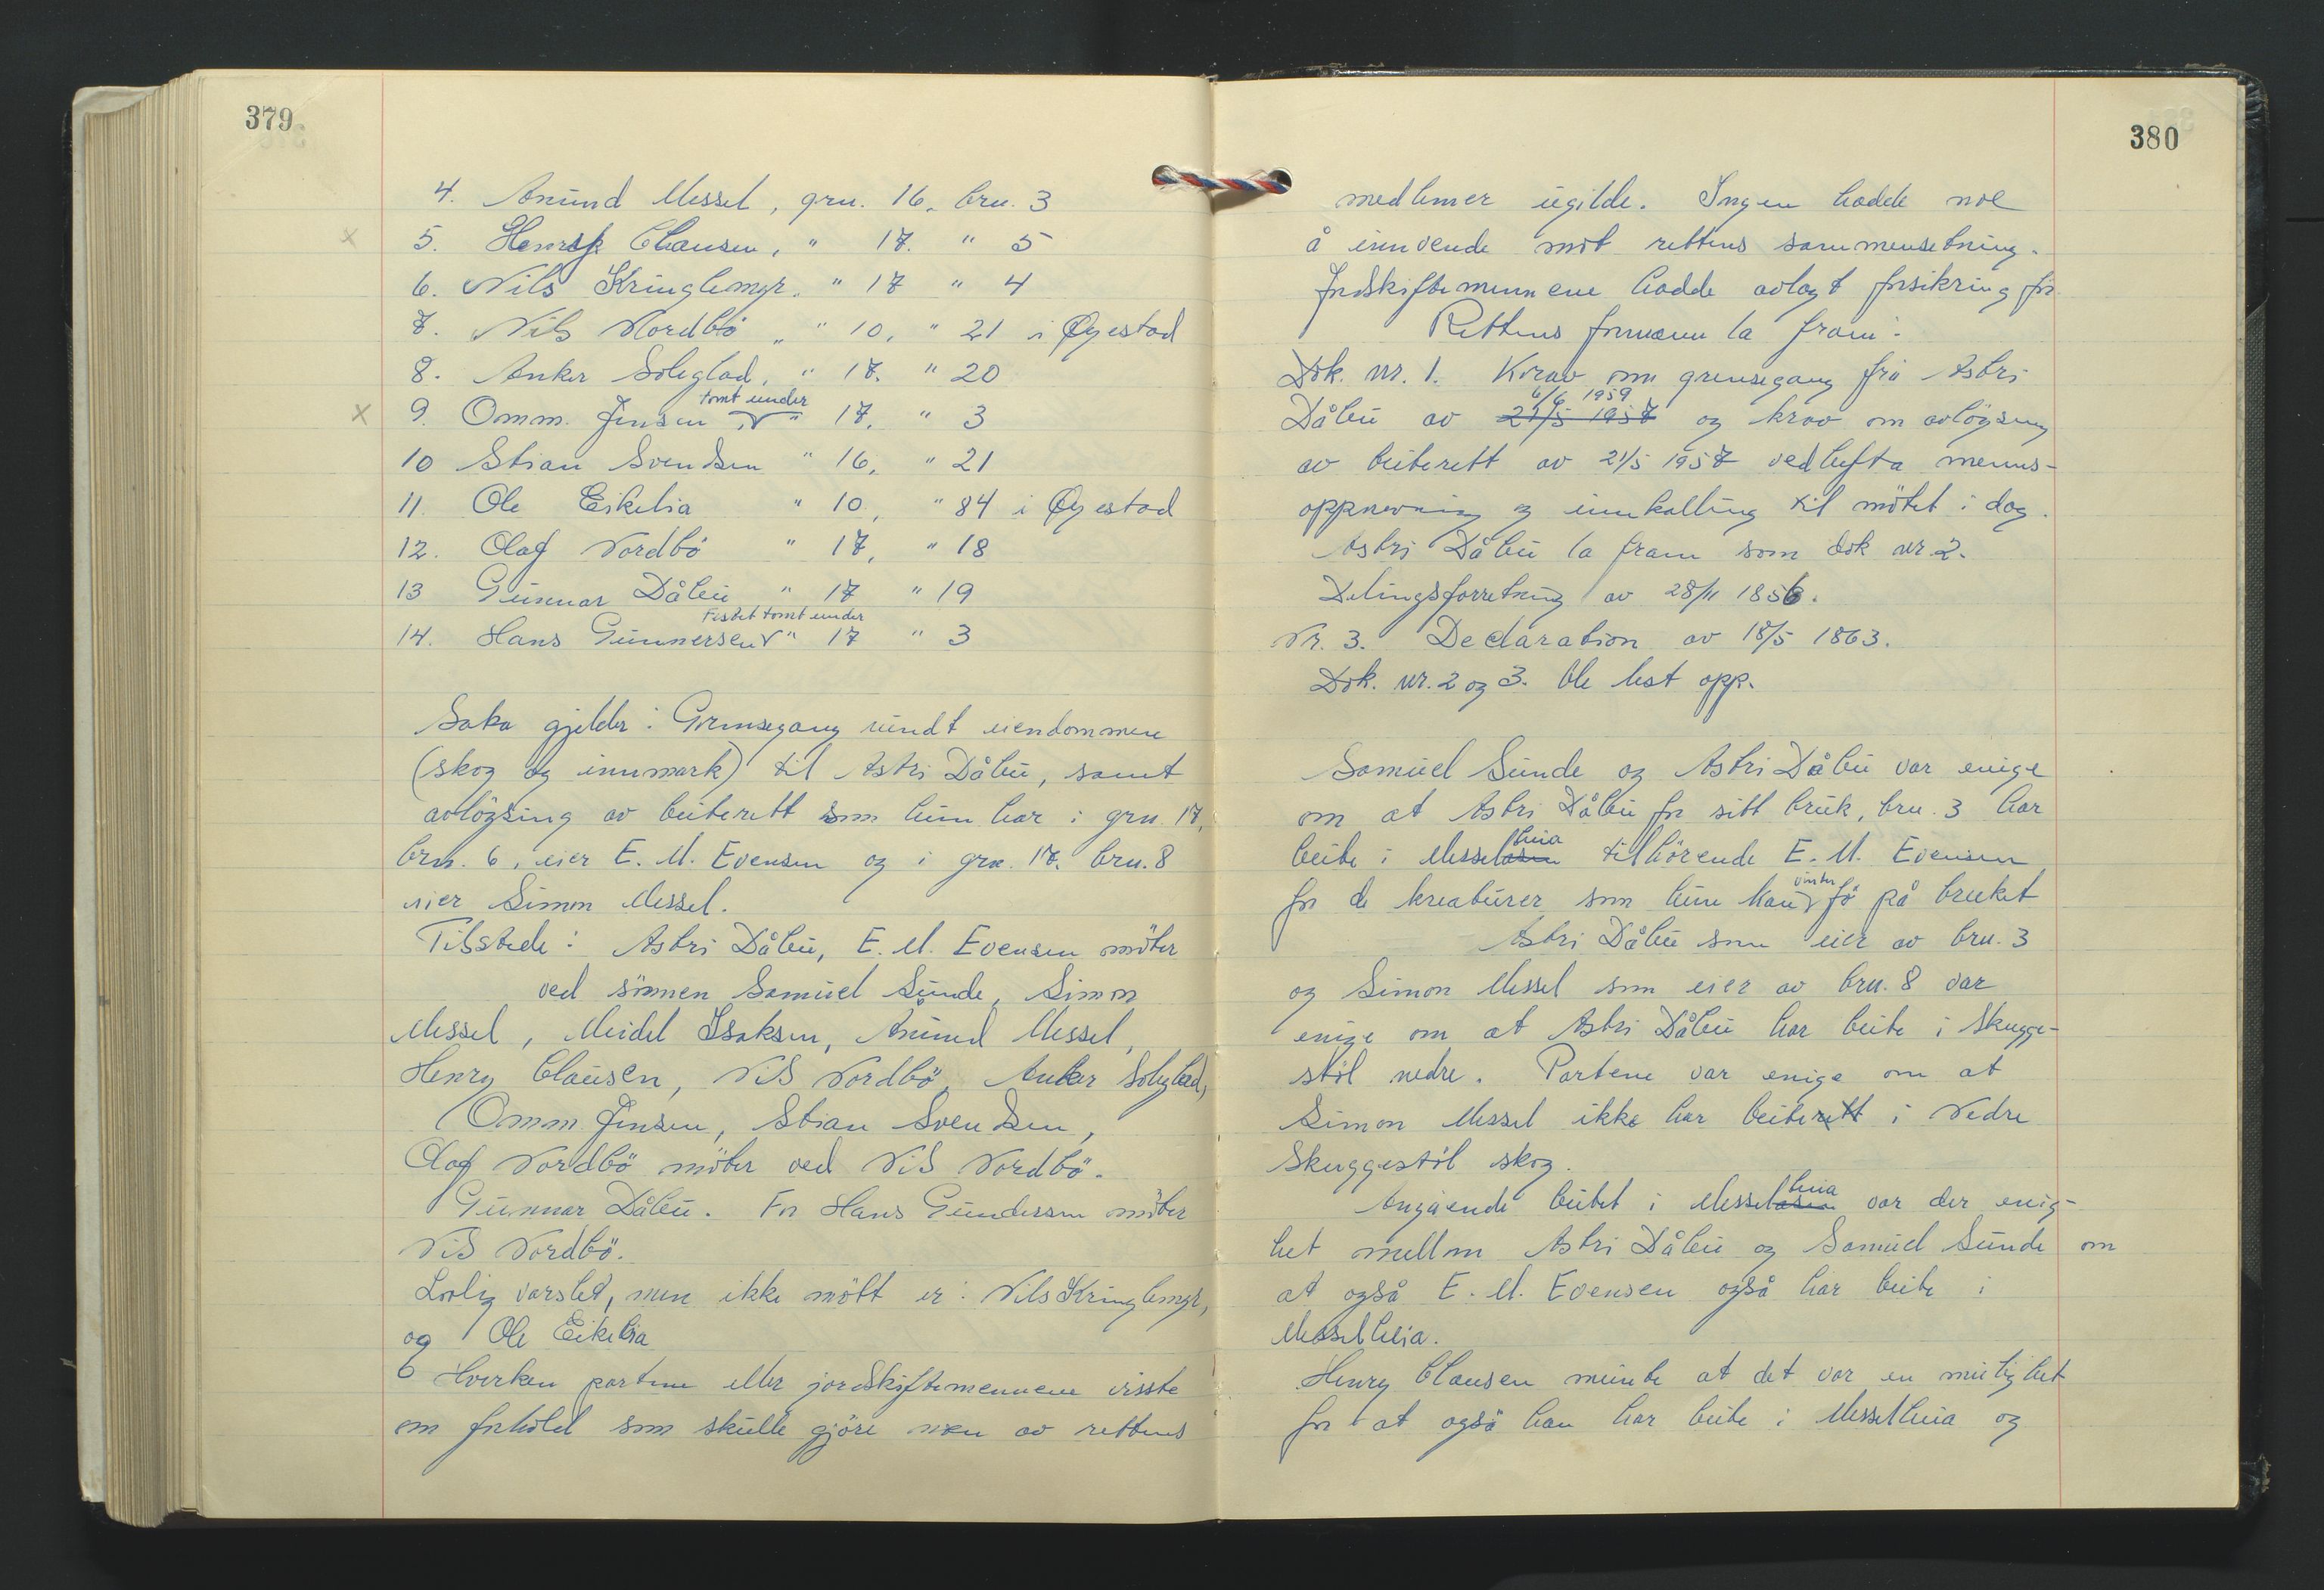 379
4. Anund Messel, gnr. 16, bnr. 3
5. Henry Clausen, " 17. " 5
6. Nils Kringlemyr, " 17 " 4
7. Nils Nordbö, " 10, " 21 i Øyestad
8. Anker Soleglad, " 17. " 20
tomt under
9. Omm. Jensen " 17, " 3
10 Stian Svendsen " 16, " 21
11. Ole Eikelia " 10, " 84 i Øyestad
12. Olaf Nordbö " 17, " 18
13 Gunnar Dåbu " 17 " 19
Festet tomt under
14. Hans Gunnersen " 17 " 3
Saka gjelder: Grensegang rundt eiendommene
(skog og innmark) til Astri Dåbu, samt
avlöysing av beiterett som hun har i gnr. 17,
bnr. 6, eier E. M. Evensen og i gnr. 17. bnr. 8
eier Simon Messel.
Tilstede: Astri Dåbu, E. M. Evensen möter
ved sönnen Samuel Sunde, Simon
Messel, Meidel Isaksen, Anund Messel,
Henry Clausen, Nils Nordbö, Anker Soleglad,
Omm. Jensen, Stian Svendsen,
Olaf Nordbö möter ved Nils Nordbö.
Gunnar Dåbu. For Hans Gundersen möter
Nils Nordbö.
Lovlig varslet, men ikke mött er: Nils Kringlemyr,
og Ole Eikelia
Hverken partene eller jordskiftemennene visste
om forhold som skulle gjöre noen av rettens
380
medlemer ugilde. Ingen hadde noe
å innvende mot rettens sammensetning.
Jordskiftemennene hadde avlagt forsikring för.
Rettens formann la fram:
Dok. nr. 1. Krav om grensegang frå Astri
6/6 1959
Dåbu av 21/5 1957 og krav om avlöysing
av beiterett av 21/5 1957 vedhefta menns-
oppnevning og innkalling til mötet i dag.
Astri Dåbu la fram som dok nr 2.
Delingsforretning av 28/11 1856.
Nr. 3. Declaration av 18/5 1863.
Dok. nr. 2 og 3. ble lest opp.
Samuel Sunde og Astri Dåbu var enige
om at Astri Dåbu for sitt bruk, bnr. 3 har
heia
beite i Messelåsen tilhörende E. M. Evensen
vinter
for de kreaturer som hun kan fö på bruket
Astri Dåbu som eier av bnr. 3
og Simon Messel som eier av bnr. 8 var
enige om at Astri Dåbu har beite i Skugge-
stöl nedre. Partene var enige om at
Simon Messel ikke har beiterett i Nedre
Skuggestöl skog.
heia
Angående beitet i Messelåsen var der enig-
het mellom Astri Dåbu og Samuel Sunde om
at også E. M. Evensen også har beite i
Messelheia.
Henry Clausen mente at det var en mulighet
for at også han har beite i Messelheia og